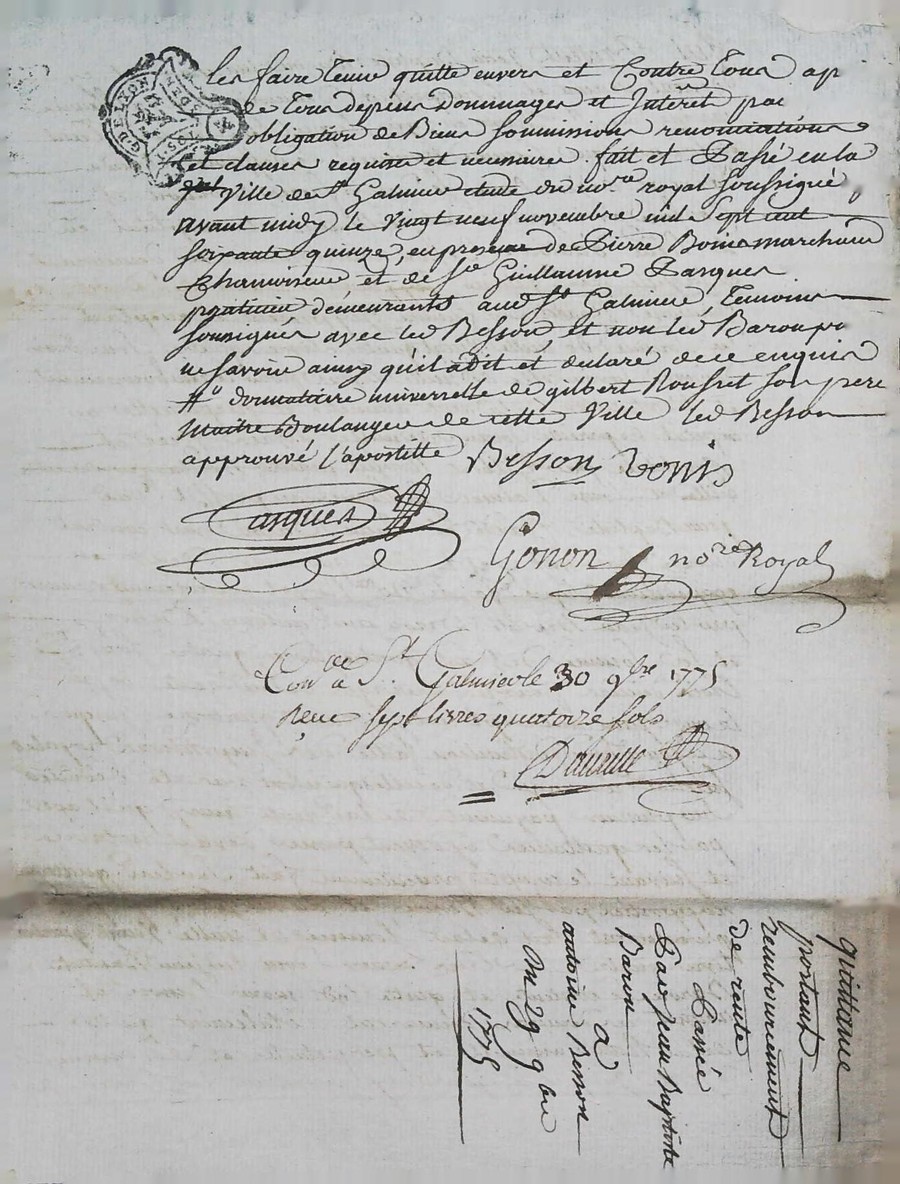 les faire tenir quitte envers et Contre tous ap
de tous depens dommages et Interêt par
obligation de Biens soumissions renonciations
et clauses requise et necessaire. fait et Passé en la
Ville de St Galmier etude du nore royal soussigné
avant midy le vingt neuf novembre mil sept cent
soixante quinze, en presence de Pierre Boine marchand
Chamoiseur et de Sr Guillaume Pasques
praticien demeurants aud St Galmier, temoins
soussignés avec led Besson, et non led Baron pr
ne savoir ainsy qu'il a dit et declaré de ce enquis
donnataire universelle de gilbert Rousset son pere
maitre Boulanger de cette Ville led Besson
approuvé l'apostille Besson
Pasques
Gonon nore Royal
St Galmier le 30 9bre 1775
Reçu sept livres quatorze sols
quittance
portant
remboursement
de rente
Passée
Par Jean Baptiste
Baron
a
antoine Besson
Du 29 9bre
1775